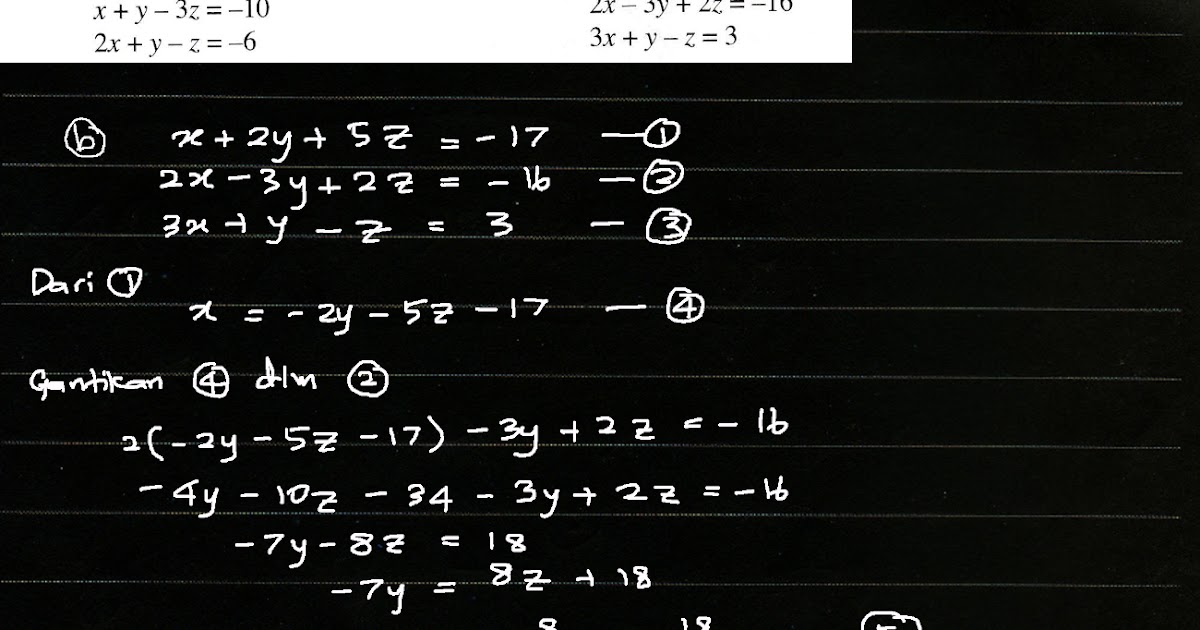 x + y – 3z = –10
2x + y – z = –6
2x – 3y + 2z = –16
3x + y – z = 3
ⓑ x + 2y + 5z = -17 — ①
2x - 3y + 2z = -16 — ②
3x + y - z = 3 — ③
Dari ①
x = -2y - 5z - 17 — ④
Gantikan ④ dlm ②
2(-2y - 5z - 17) - 3y + 2z = -16
-4y - 10z - 34 - 3y + 2z = -16
-7y - 8z = 18
-7y = 8z + 18
8 18